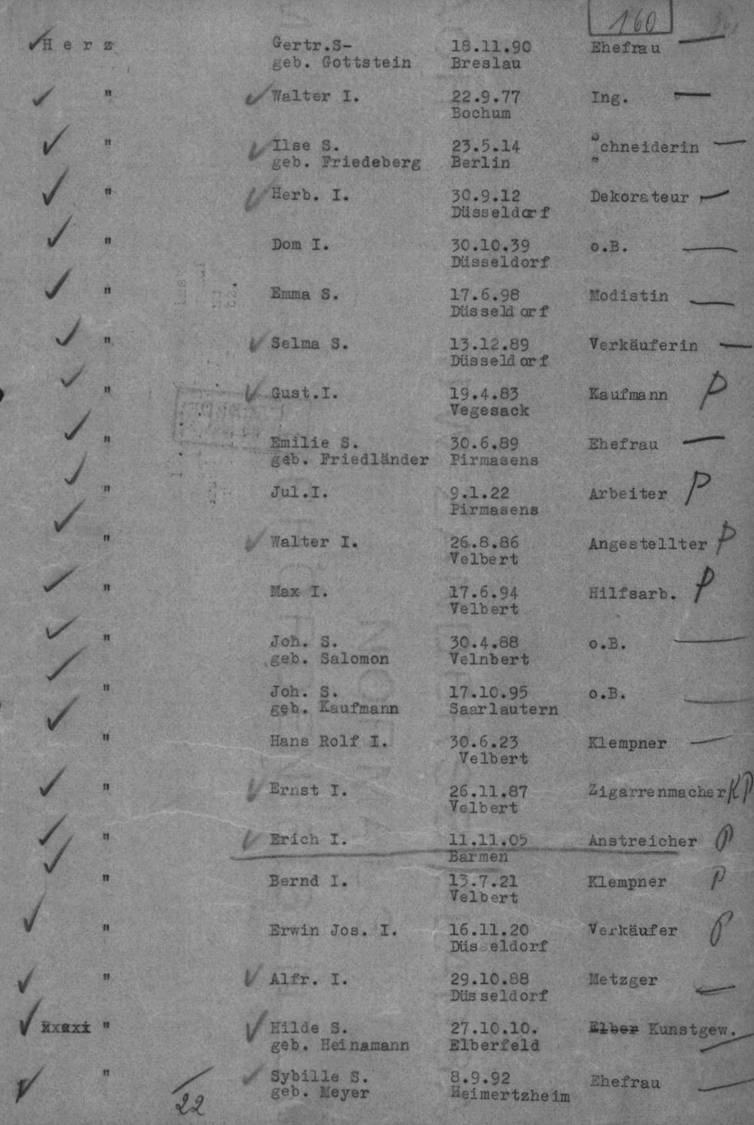 160
✓Herz Gertr.S- 18.11.90 Ehefrau —
geb. Gottstein Breslau
✓ " ✓Walter I. 22.9.77 Ing. —
Bochum
✓ " ✓Ilse S. 23.5.14 Schneiderin —
geb. Friedeberg Berlin "
✓ " ✓Herb. I. 30.9.12 Dekorateur —
Düsseldorf
✓ " Dom I. 30.10.39 o.B. —
Düsseldorf
✓ " Emma S. 17.6.98 Modistin —
Düsseldorf
✓ " ✓Selma S. 13.12.89 Verkäuferin —
Düsseldorf
✓ " ✓Gust.I. 19.4.83 Kaufmann P
Vegesack
✓ " Emilie S. 30.6.89 Ehefrau —
geb. Friedländer Pirmasens
✓ " Jul.I. 9.1.22 Arbeiter P
Pirmasens
✓ " ✓Walter I. 26.8.86 Angestellter P
Velbert
✓ " Max I. 17.6.94 Hilfsarb. P
Velbert
✓ " Joh. S. 30.4.88 o.B. —
geb. Salomon Velnbert
✓ " Joh. S. 17.10.95 o.B. —
geb. Kaufmann Saarlautern
✓ " Hans Rolf I. 30.6.23 Klempner —
Velbert
✓ " ✓Ernst I. 26.11.87 Zigarrenmacher KP
Velbert
✓ " ✓Erich I. 11.11.05 Anstreicher P
Barmen
✓ " Bernd I. 13.7.21 Klempner P
Velbert
✓ " Erwin Jos. I. 16.11.20 Verkäufer P
Düsseldorf
✓ " ✓Alfr. I. 29.10.88 Metzger —
Düsseldorf
✓ " ✓Hilde S. 27.10.10. Elber Kunstgew. —
geb. Heinamann Elberfeld
✓ " ✓Sybille S. 8.9.92 Ehefrau —
geb. Meyer Heimertzheim
22